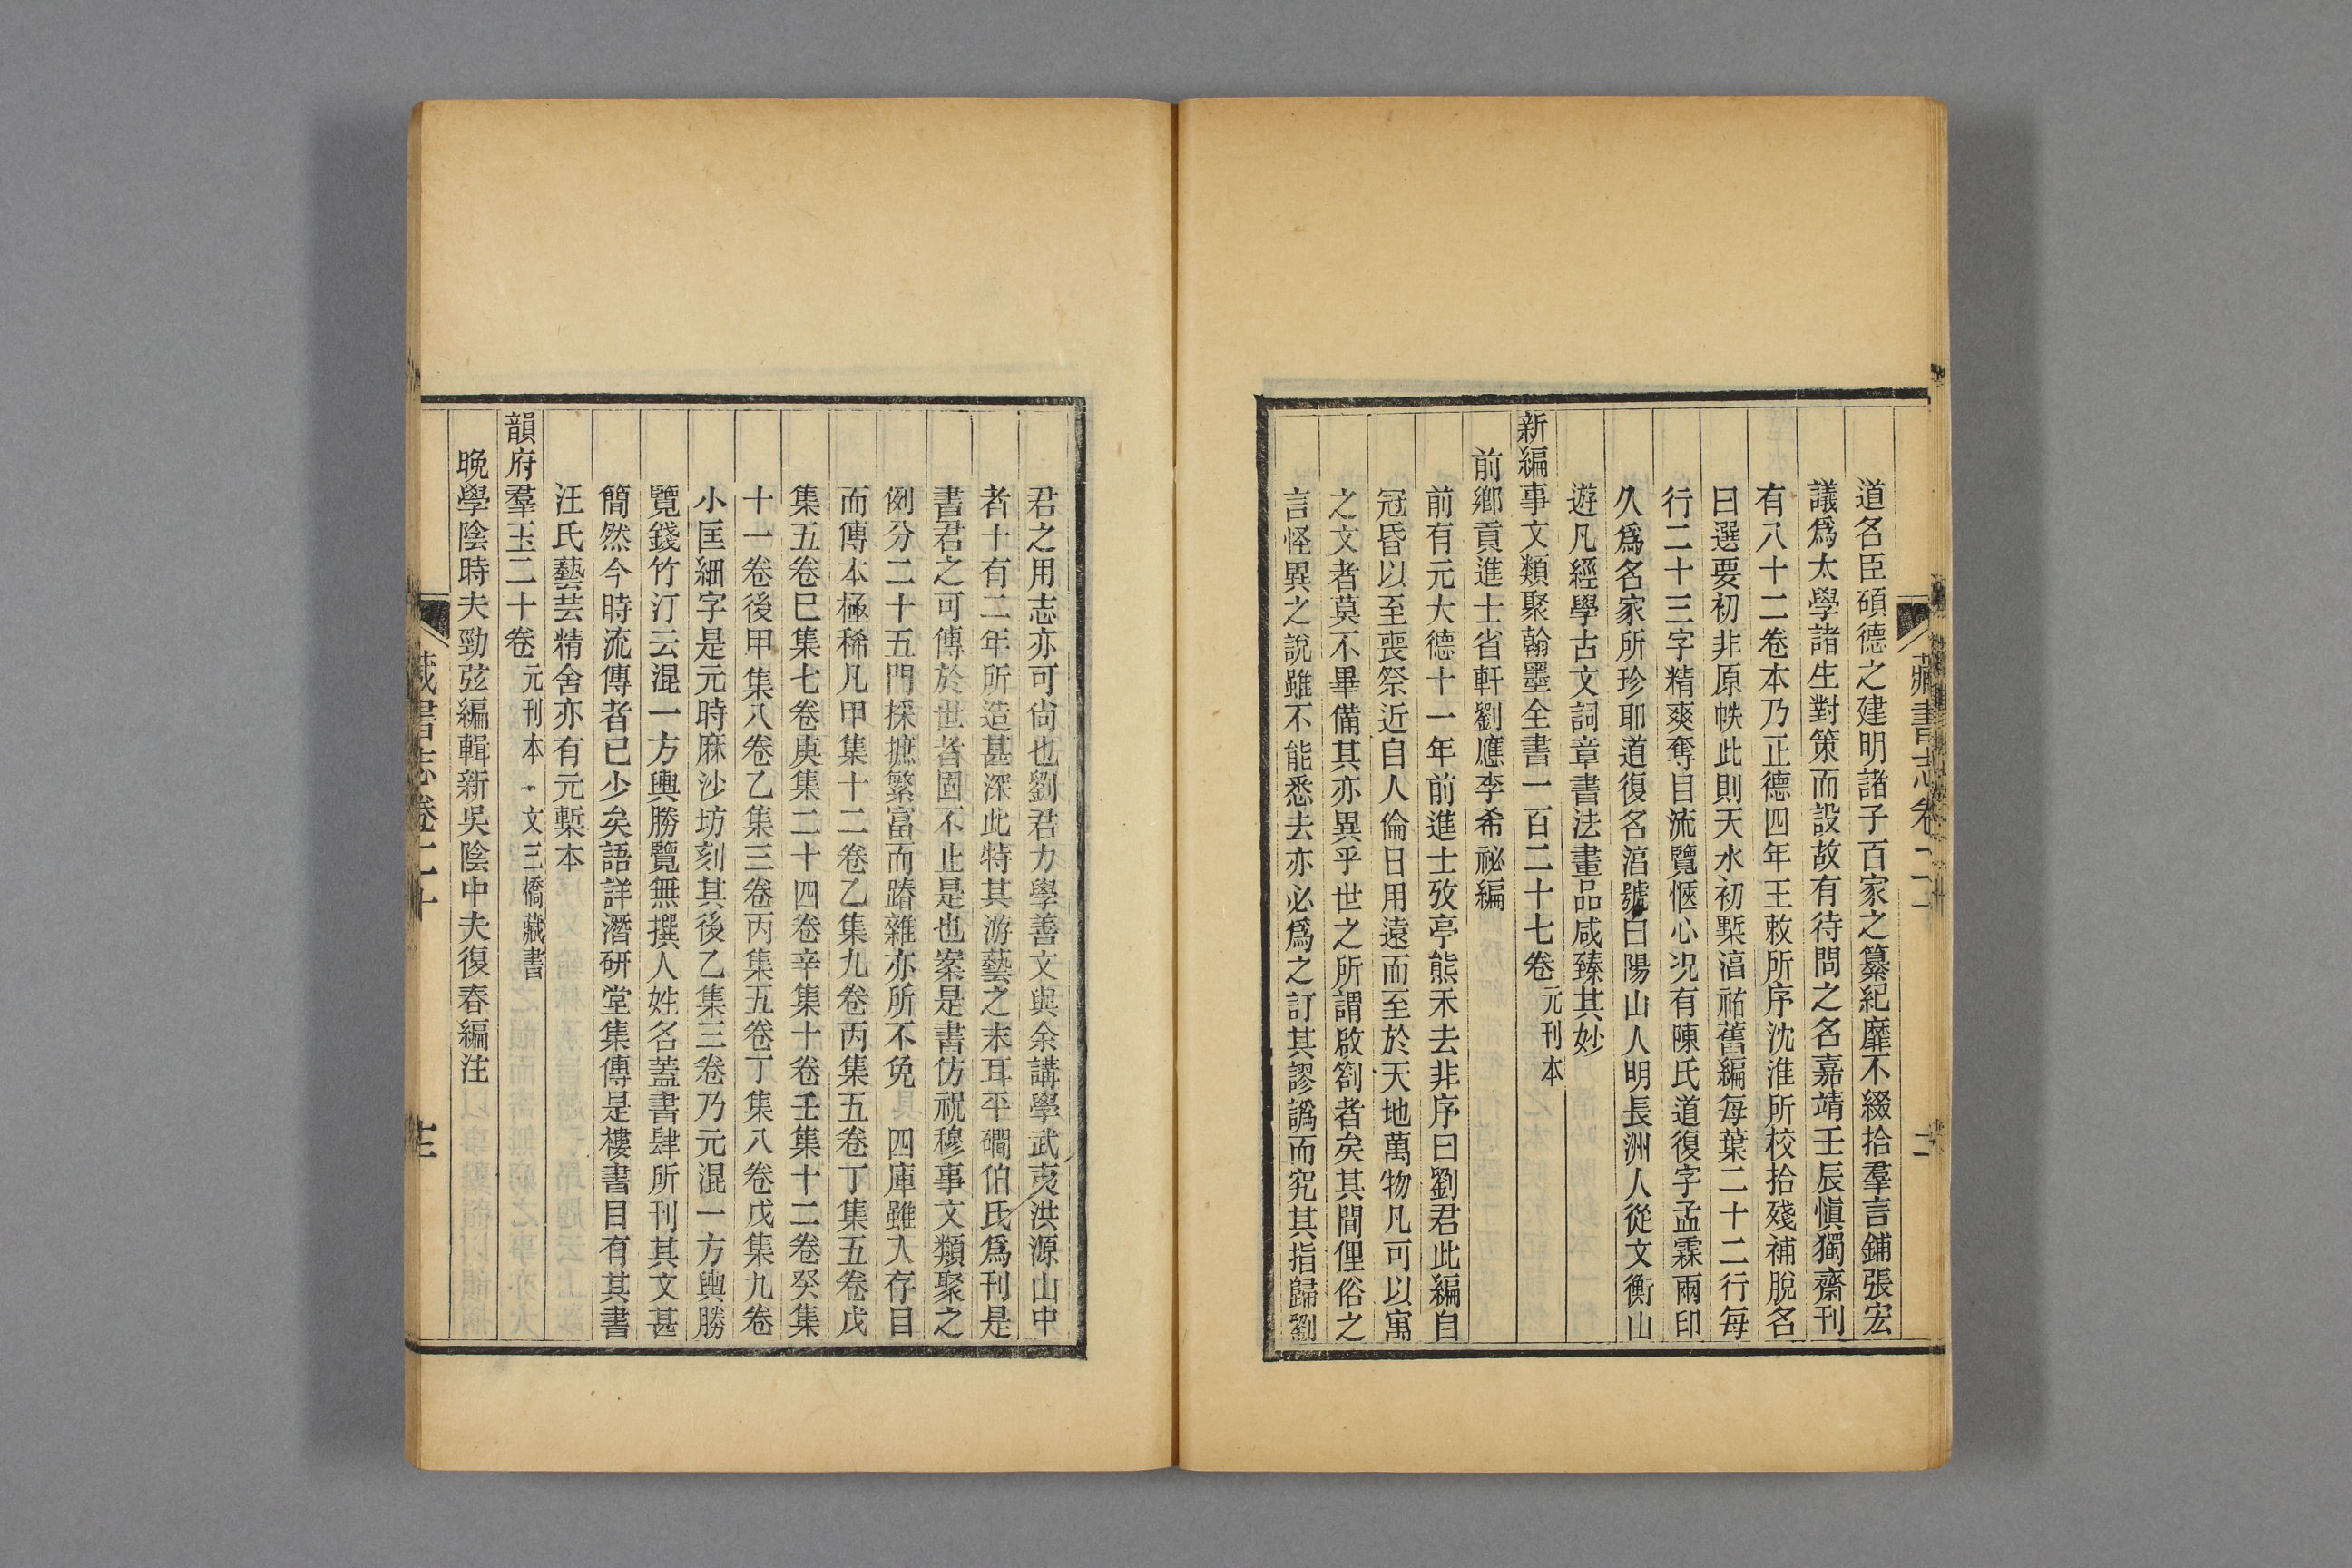 道名臣碩德之建明諸子百家之纂紀靡不綴拾羣言鋪張宏
議爲太學諸生對策而設故有待問之名嘉靖壬辰愼獨齋刊
有八十二卷本乃正德四年王敕所序沈淮所校拾殘補脫名
曰選要初非原帙此則天水初槧湻祐舊編每葉二十二行每
行二十三字精爽奪目流覽愜心况有陳氏道復字孟霖兩印
久爲名家所珍耶道復名湻號白陽山人明長洲人從文衡山
遊凡經學古文詞章書法畫品咸臻其妙
新編事文類聚翰墨全書一百二十七卷 元刊本
前鄉貢進士省軒劉應李希祕編
前有元大德十一年前進士攷亭熊禾去非序曰劉君此編自
冠昏以至喪祭近自人倫日用遠而至於天地萬物凡可以寓
之文者莫不畢備其亦異乎世之所謂啟劄者矣其間俚俗之
言怪異之說雖不能悉去亦必爲之訂其謬譌而究其指歸劉
君之用志亦可尙也劉君力學善文與余講學武夷洪源山中
者十有二年所造甚深此特其游藝之末耳平磵伯氏爲刊是
書君之可傳於世者固不止是也案是書仿祝穆事文類聚之
例分二十五門採摭繁富而踳雜亦所不免 四庫雖入存目
而傳本極稀凡甲集十二卷乙集九卷丙集五卷丁集五卷戊
集五卷巳集七卷庚集二十四卷辛集十卷壬集十二卷癸集
十一卷後甲集八卷乙集三卷丙集五卷丁集八卷戊集九卷
小匡細字是元時麻沙坊刻其後乙集三卷乃元混一方輿勝
覽錢竹汀云混一方輿勝覽無撰人姓名蓋書肆所刊其文甚
簡然今時流傳者已少矣語詳潛研堂集傳是樓書目有其書
汪氏藝芸精舍亦有元槧本
韻府羣玉二十卷 元刊本 文三橋藏書
晚學陰時夫勁弦編輯新吳陰中夫復春編注
藏書志卷二十